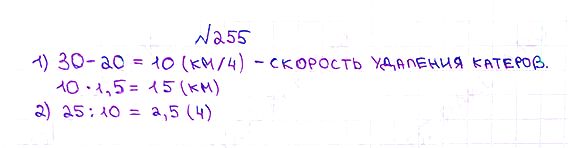 №255
1) 30-20 = 10 (км/ч) – СКОРОСТЬ УДАЛЕНИЯ КАТЕРОВ.
10 · 1,5 = 15 (км)
2) 25 : 10 = 2,5 (ч)